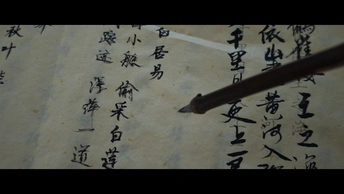 王之涣
依山 黄河入海
千里目更上一
白居易
小艇 偷采白莲
踪迹 浮萍一道
秋叶